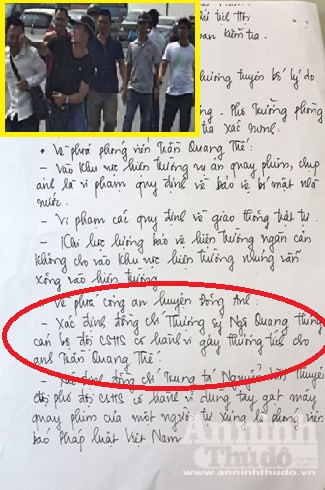 ban kiểm tra
tuyên bố lý do
Phó Trưởng phòng
xác minh:
* Về phía phóng viên Trần Quang Thế:
- Vào khu vực hiện trường vụ án quay phim, chụp
ảnh là vi phạm quy định về bảo vệ bí mật nhà
nước.
- Vi phạm các quy định về giao thông trật tự.
- Khi lực lượng bảo vệ hiện trường ngăn cản
không cho vào khu vực hiện trường nhưng vẫn
xông vào hiện trường.
Về phía công an huyện Đông Anh:
- Xác định đồng chí Thượng sỹ Ngô Quang Hưng
cán bộ đội CSHS có hành vi gây thương tích cho
anh Trần Quang Thế.
- Xác định đồng chí Trung tá Nguyễn Văn Thuyên
đội phó đội CSHS có hành vi dùng tay gạt máy
quay phim của một người tự xưng là phóng viên
báo Pháp luật Việt Nam
An ninh
Thủ đô
WWW.ANNINHTHUDO.VN